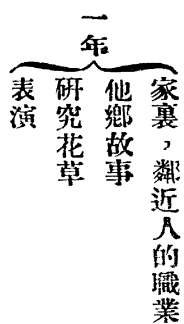 一年
家裏，鄰近人的職業
他鄉故事
研究花草
表演